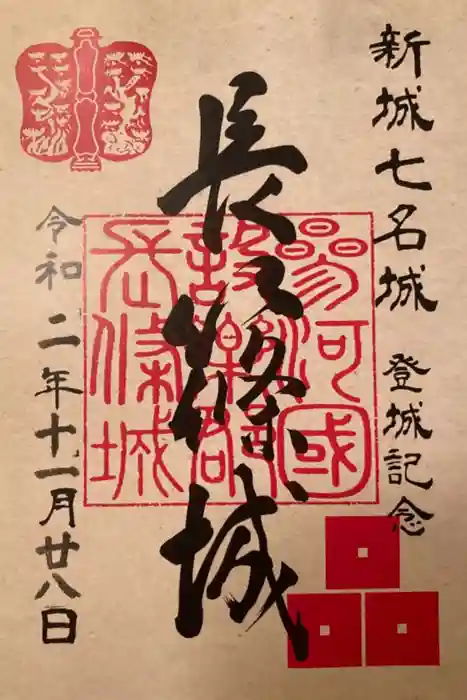 新城七名城 登城記念
長篠城
參河國
設樂郡
長篠城
令和二年十一月廿八日